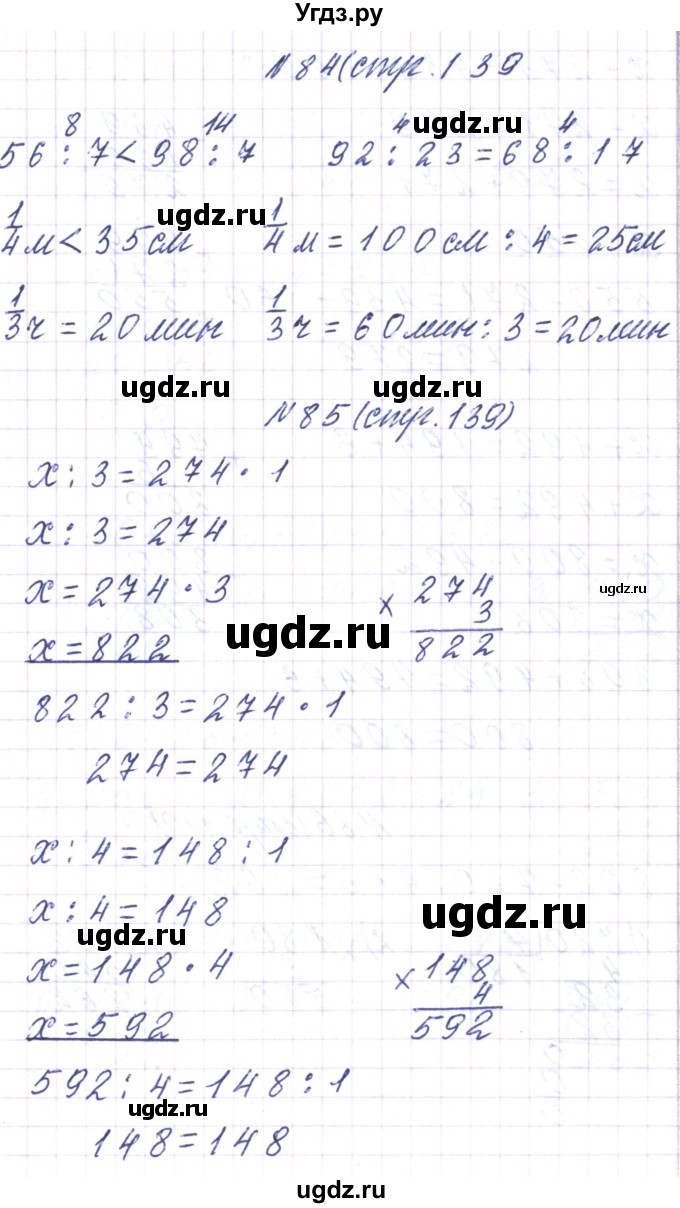 Угдз.ру
№84(стр.139
8 14 4 4
56:7<98:7 92:23=68:17
ugdz.ru
ugdz.ru
1/4м<35см 1/4м=100см:4=25см
1/3ч=20мин 1/3ч=60мин:3=20мин
ugdz.ru ugdz.ru
№85(стр.139)
x:3=274·1
x:3=274
x=274·3 × 274
ugdz.ru
3
x=822 822
ugdz.ru
822:3=274·1
274=274
x:4=148:1
x:4=148
ugdz.ru
ugdz.ru
x=148·4 × 148
4
x=592 592
592:4=148:1
ugdz.ru
148=148
ugdz.ru